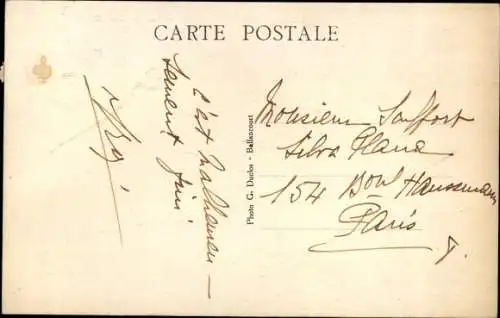 CARTE POSTALE
c'est malheureu-
sement fini
Photo G. Duclos - Ballancourt
Monsieur
Silva Plana
154 Boul Haussmann
Paris